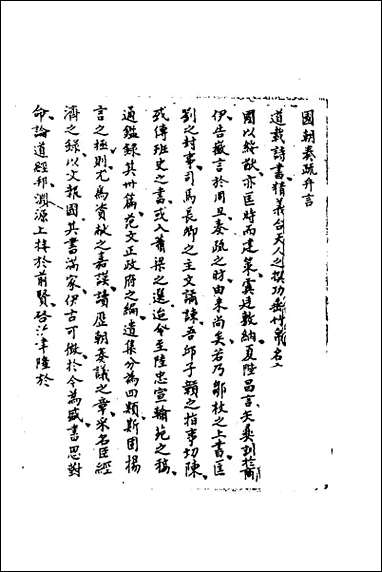 國朝奏疏弁言
道載詩書精義合天人之撰功垂竹帛名
國以綏猷亦匡時而建策寞廷敷納夏陸昌言矣奧訓於商
伊告徽言於周旦奏疏之昉由来尚矣若乃鄒枚之上書匡
劉之封事司馬長卿之主文譎諫吾邱子贛之指事切陳
或傳班史之書或入蕭梁之選迄今至陸忠宣翰苑之稿
通鑑錄其卅篇范文正政府之編遺集分為四類斯固揚
言之極則尤為資獻之嘉謨讀歷朝奏議之章宋名臣經
濟之錄以文報國其書滿家伊古可徵於今為盛書思對
命論道經邦淵源上接於前賢啟沃聿隆於